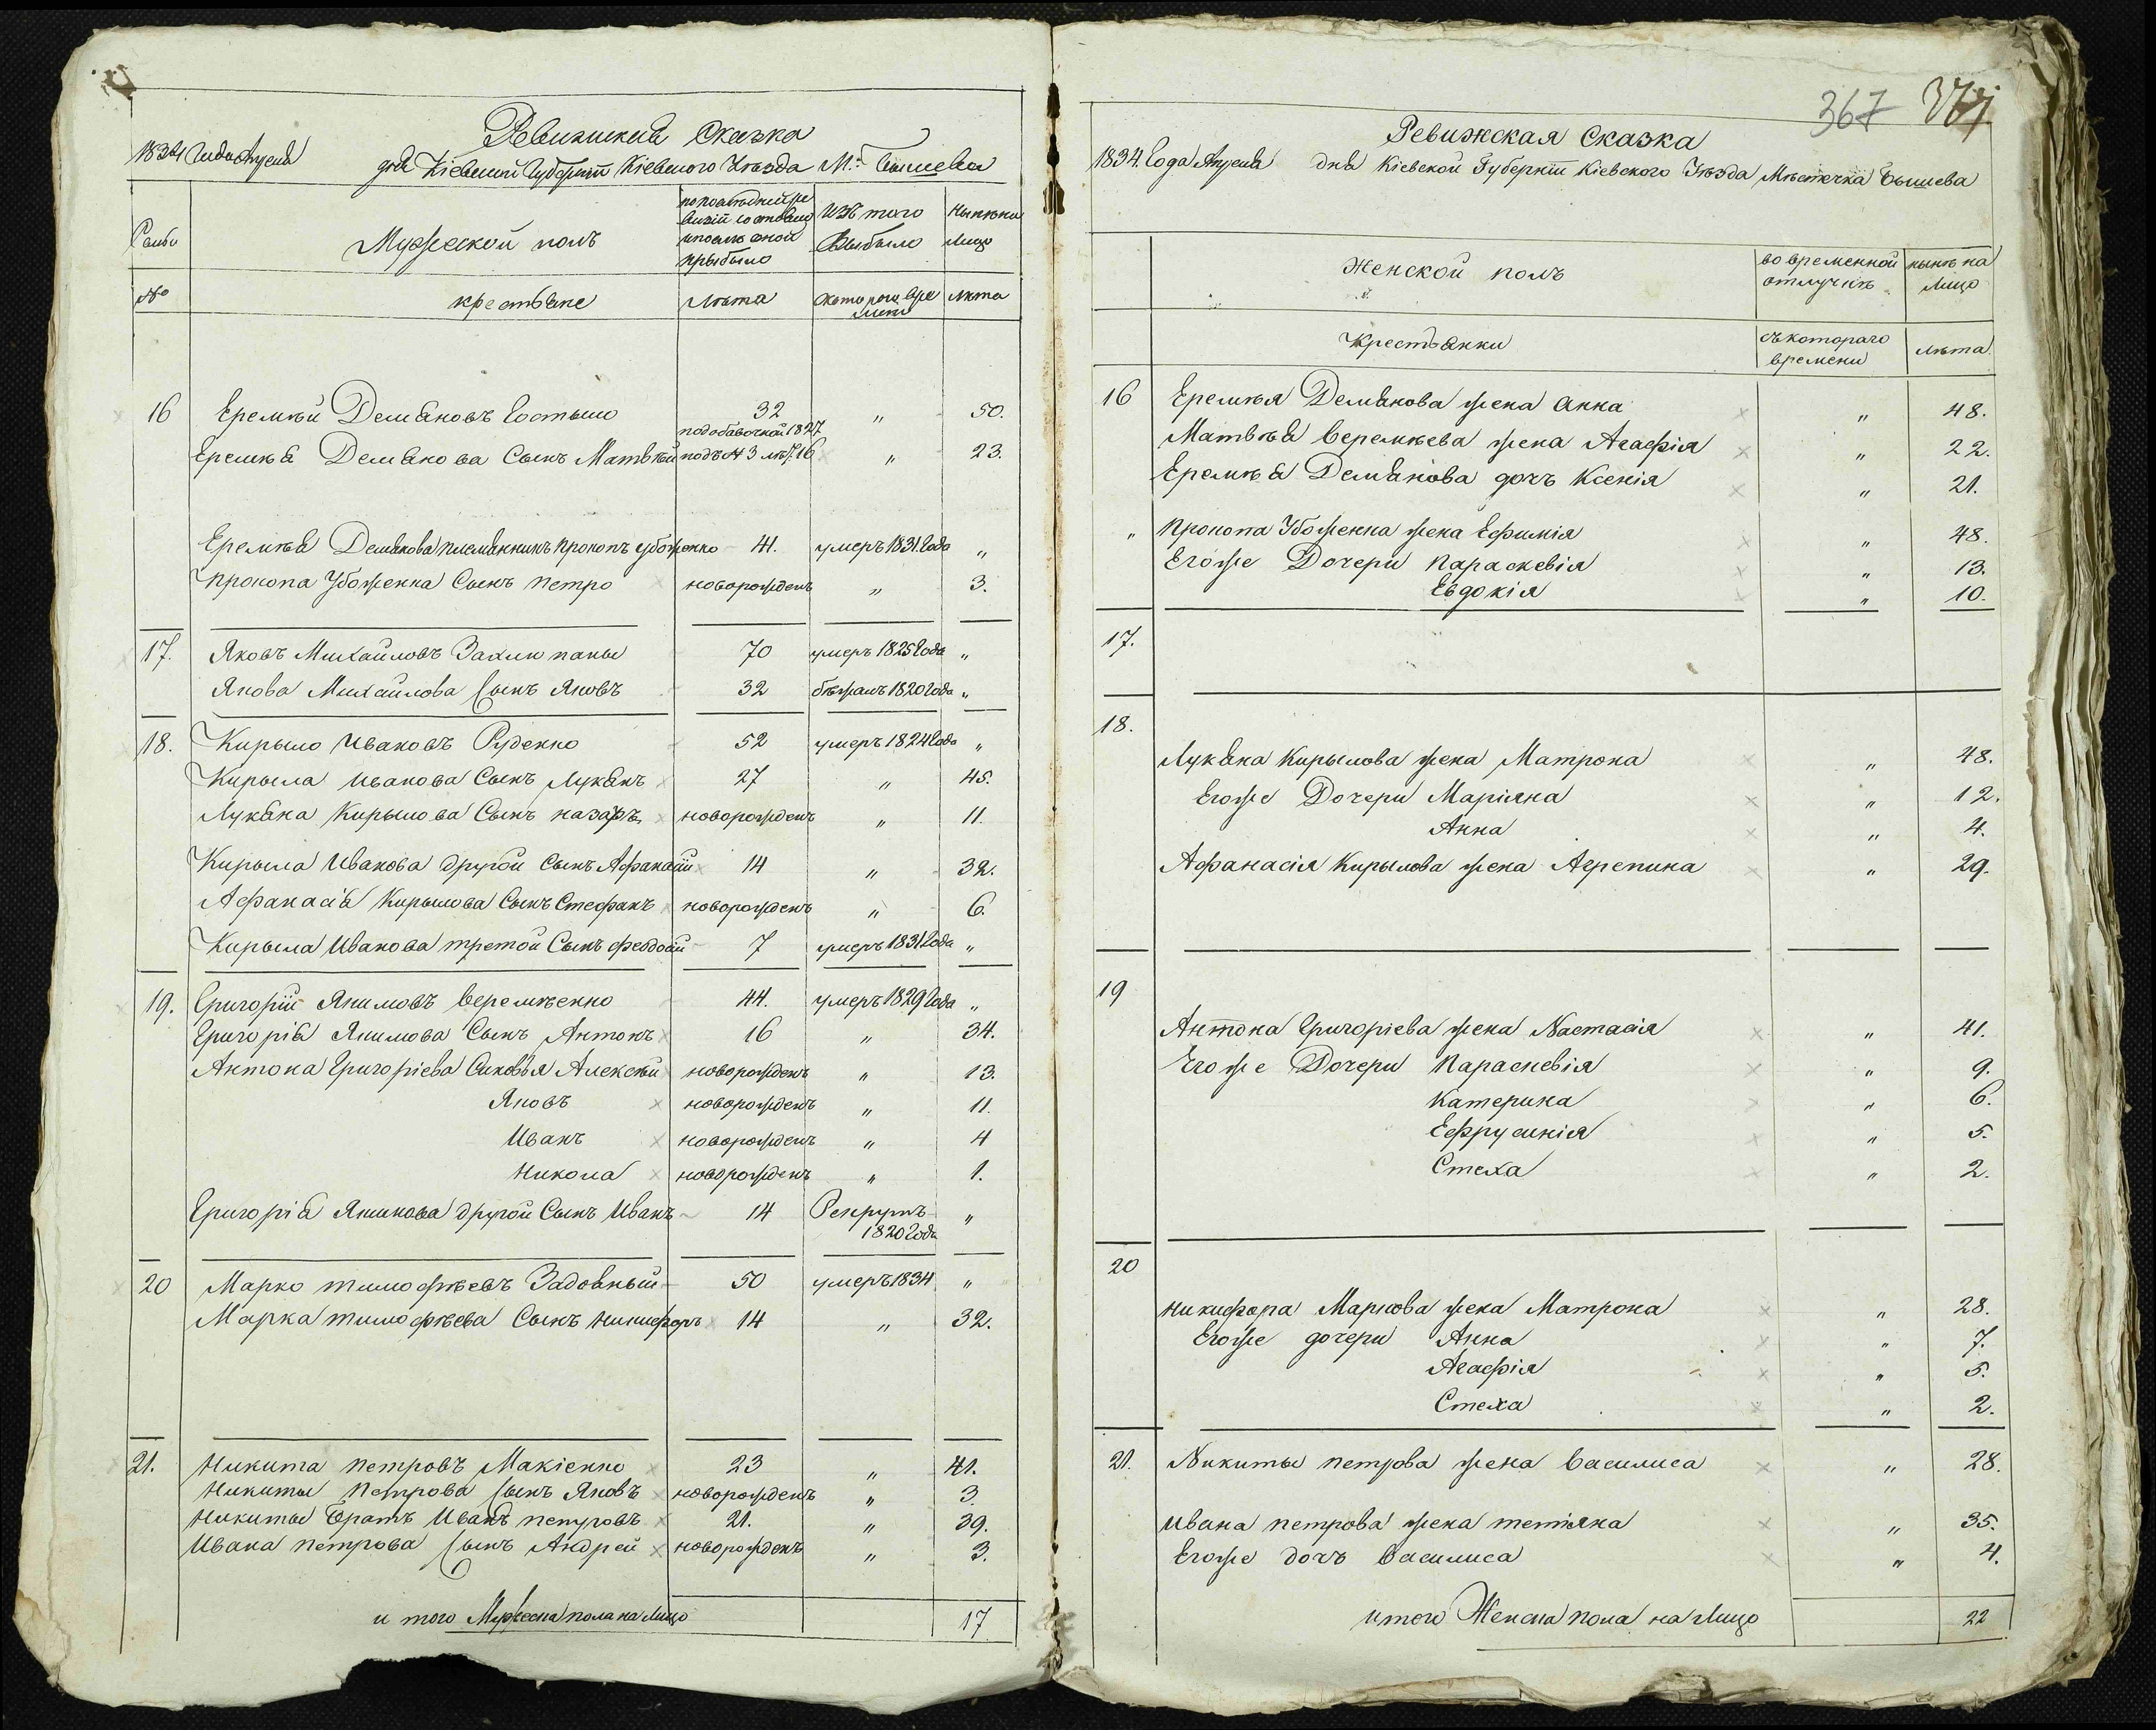 Ревижская Сказка
1834 Года Апреля дня Кіевской Губерніи Кіевского Уѣзда М: Бышева
Мужеской полъ
по последней ревизіи состояло и после оной прыбыло
Изъ того Выбыло
Нынѣ на Лицо
№
крестьяне
лѣта
Которого времени
лѣта
16 Еремѣй Демяновъ Костыло 32 " 50.
по добавочной 1827
Еремѣя Демянова Сынъ Матвѣй подъ № 3 лѣтъ 16 " 23.
Еремѣя Демянова племянникъ прокопъ убоженко 41. умеръ 1831 Года "
Прокопа Убоженка Сынъ петро новорожденъ " 3.
17. Яковъ Михайловъ умеръ 1825 Года "
70
Якова Михайлова Сынъ Яковъ 32 бѣжалъ 1820 Года "
18. Кирыло Ивановъ Руденко 52 умеръ 1824 Года "
Кирыла Иванова Сынъ Лукянъ 27 " 45.
Лукяна Кирылова Сынъ назаръ новорожденъ " 11.
Кирыла Иванова другой Сынъ Афанасій 14 " 32.
Афанасія Кирылова Сынъ Стефанъ новорожденъ " 6.
Кирыла Иванова третой Сынъ феодосій 7 умеръ 1831 Года "
19. Григорій Якимовъ Веремѣенко 44. умеръ 1829 Года "
Григорія Якимова Сынъ Антонъ 16 " 34.
Антона Григоріева Сыновья Алексѣй новорожденъ " 13.
Яковъ новорожденъ " 11.
Иванъ новорожденъ " 4
Никола новорожденъ " 1.
Григорія Якимова другой Сынъ Иванъ 14 Рекрутъ "
1820 Года
20 Марко тимофѣевъ 50 умеръ 1834 "
Марка тимофѣева Сынъ никифоръ 14 " 32.
21. Никита петровъ Макіенко 23 " 41.
Никиты Петрова Сынъ Яковъ новорожденъ " 3.
Никиты Братъ Иванъ петровъ 21. " 39.
Ивана петрова Сынъ Андрей новорожденъ " 3.
и того Мужеска пола на лицо 17
367
Ревижская Сказка
1834. Года Апреля дня Кіевской Губерніи Кіевского Уѣзда Мѣстечка Бышева
Женской полъ
во временной отлучкѣ
нынѣ на Лицо
Крестьянки
съ котораго времени
лѣта.
16 Еремѣя Демянова жена Анна " 48.
Матвѣя Веремѣева жена Агафія " 22.
Еремѣя Демянова дочъ Ксенія " 21.
" Прокопа Убоженка жена Ефимія " 48.
Егоже Дочери Параскевія " 13.
Евдокія " 10.
17.
18.
Лукяна Кирылова жена Матрона " 48.
Егоже Дочери Маріяна " 12.
Анна " 4.
Афанасія Кирылова жена Агрепина " 29.
19
Антона Григоріева жена Настасія " 41.
Егоже Дочери Параскевія " 9.
Катерина " 6.
Ефрусинія " 5.
Стеха " 2.
20
никифора Маркова жена Матрона " 28.
Егоже дочери Анна " 7.
Агафія " 5.
Стеха " 2.
21. Никиты петрова жена Василиса " 28.
Ивана петрова жена тетіяна " 35.
Егоже дочъ Василиса " 4.
итого Женска пола на лицо 22